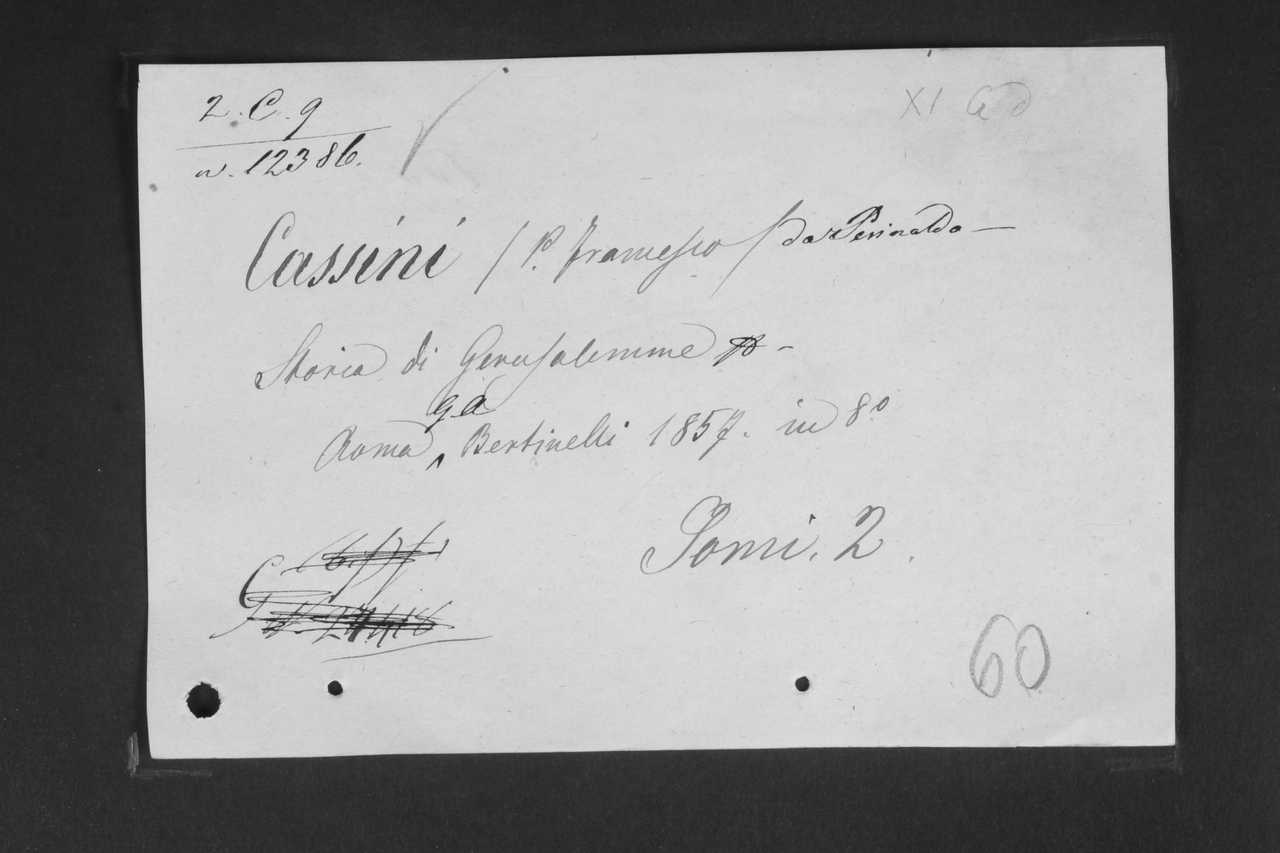 2. C. 9
n. 12386.
XI
Cassini / P. Francesco / da Perinaldo —
Storia di Gerusalemme -
Roma, Bertinelli 1857. in 8º
Tomi. 2.
60